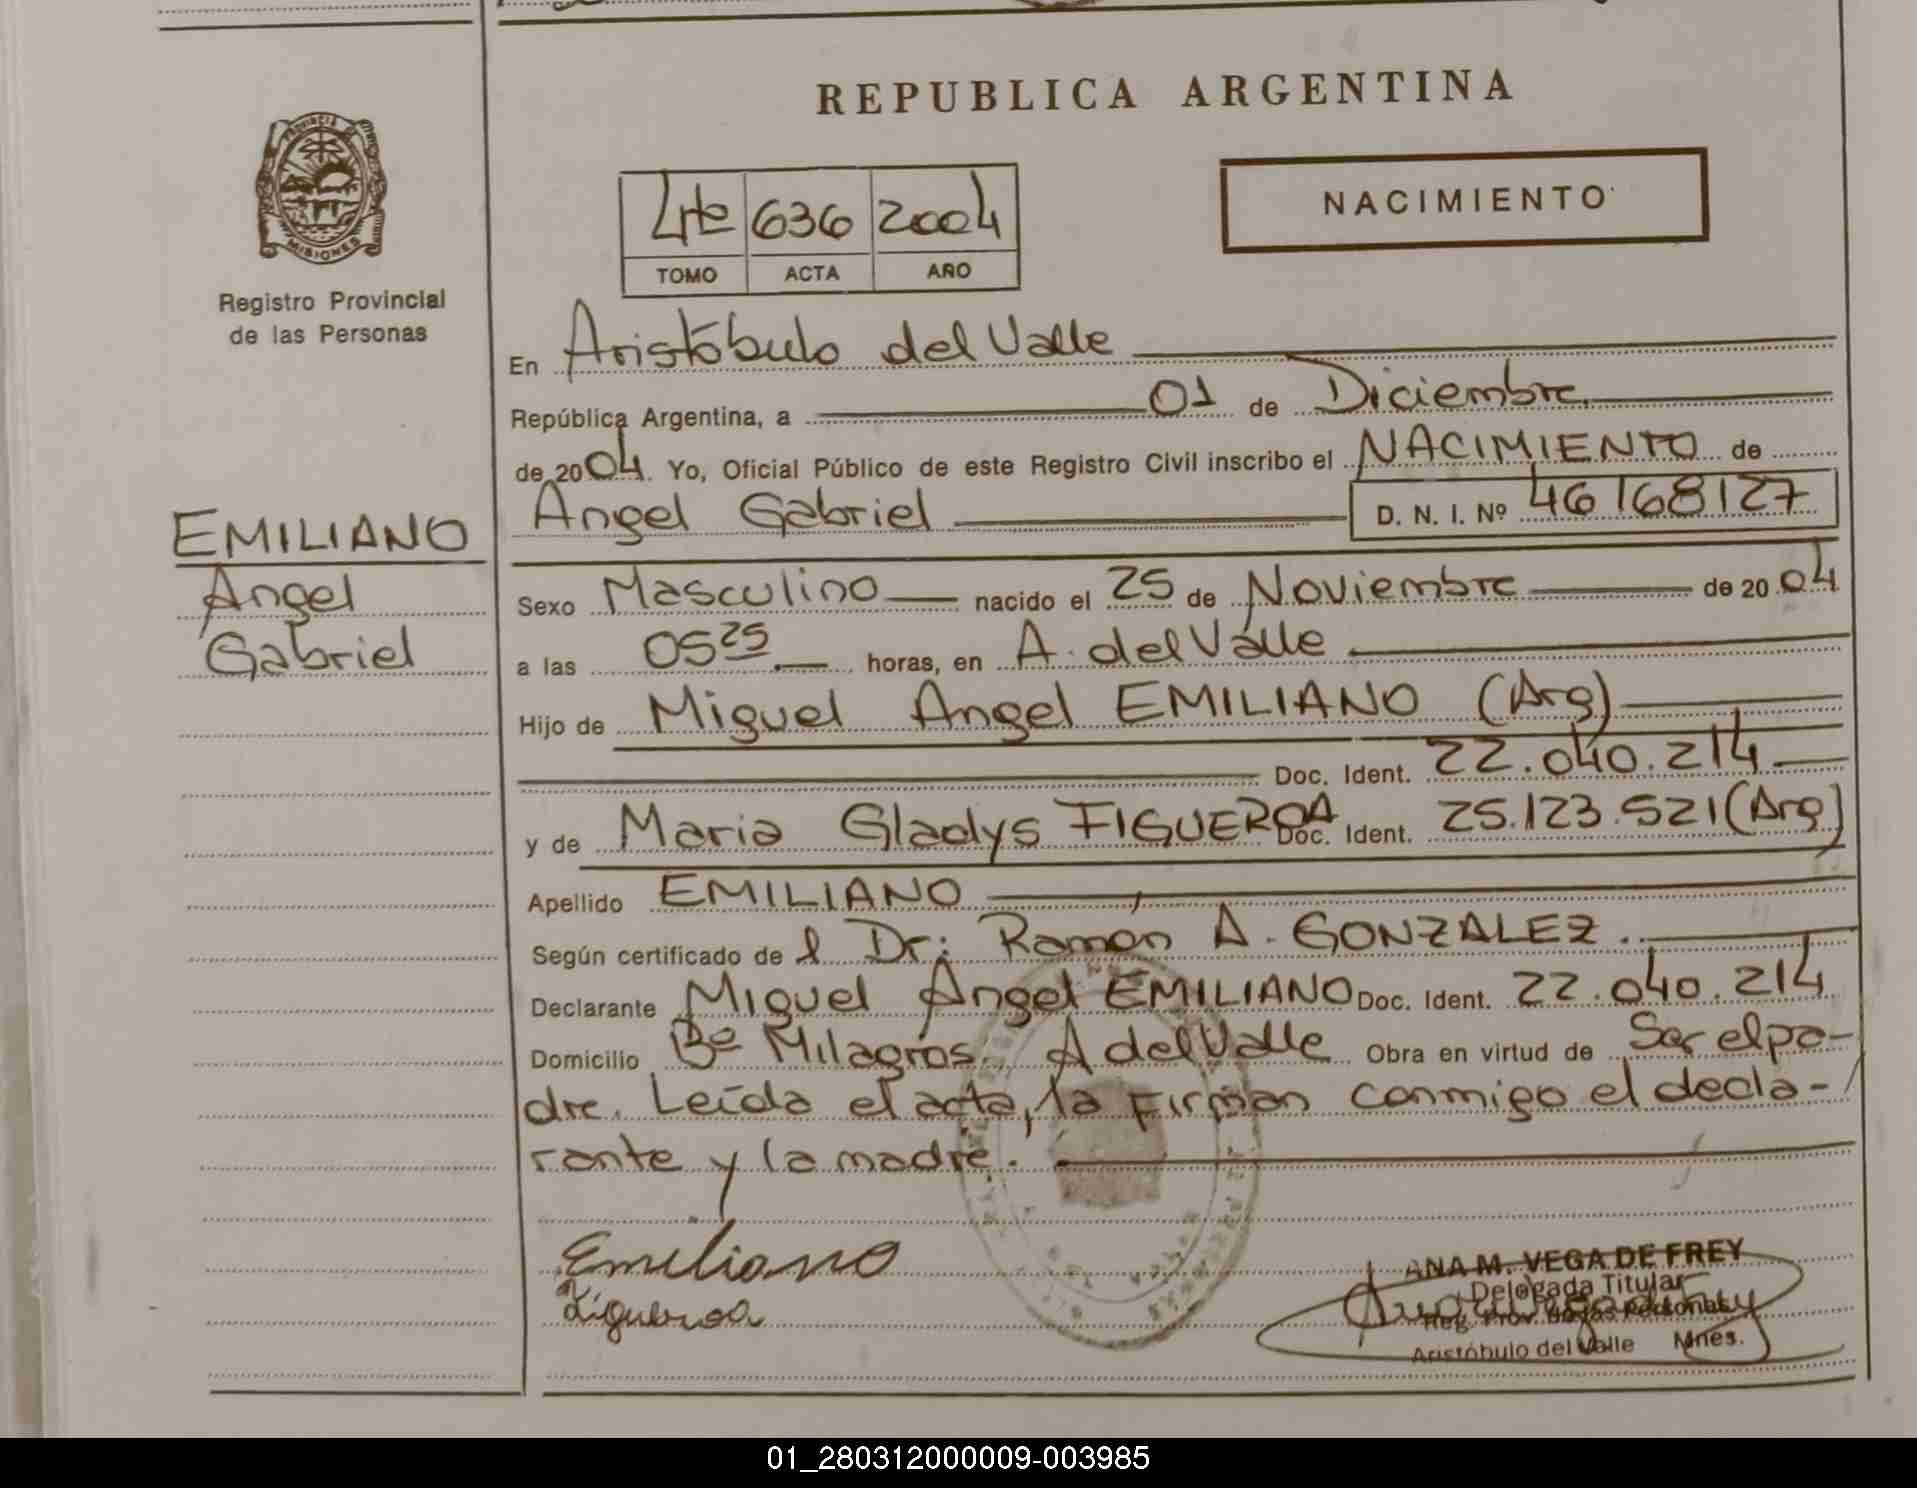 REPUBLICA ARGENTINA
PROVINCIA DE
MISIONES
Registro Provincial
de las Personas
4to 636 2004
TOMO ACTA AÑO
NACIMIENTO
En Aristóbulo del Valle
República Argentina, a 01 de Diciembre
de 2004. Yo, Oficial Público de este Registro Civil inscribo el NACIMIENTO de
Angel Gabriel D. N. I. Nº 46168127
EMILIANO
Angel
Gabriel
Sexo Masculino nacido el 25 de Noviembre de 2004
a las 05 25 horas, en A. del Valle
Hijo de Miguel Angel EMILIANO (Arg)
Doc. Ident. 22.040.214
y de Maria Gladys FIGUEROA Doc. Ident. 25.123.521 (Arg)
Apellido EMILIANO
Según certificado de l Dr: Ramón A. GONZALEZ.
Declarante Miguel Angel EMILIANO Doc. Ident. 22.040.214
Domicilio Bº Milagros. A del Valle Obra en virtud de Ser el pa-
dre. Leída el acta, la firman conmigo el decla-
rante y la madre.
Emiliano
Figueroa
ANA M. VEGA DE FREY
Delegada Titular
Reg. Prov. de las Personas
Aristóbulo del Valle Mnes.
01_280312000009-003985